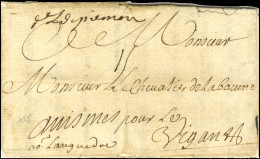 De piemon
A Monsieur
Monsieur le Chevalier de la baume
auismes pour le
Vigan
en Languedoc